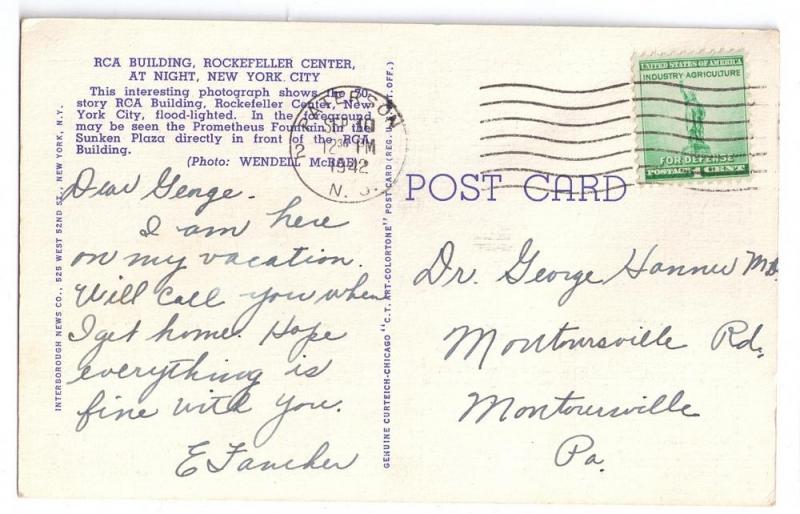 RCA BUILDING, ROCKEFELLER CENTER,
AT NIGHT, NEW YORK CITY
This interesting photograph shows the 70-
story RCA Building, Rockefeller Center, New
York City, flood-lighted. In the foreground
may be seen the Prometheus Fountain in the
Sunken Plaza directly in front of the RCA
Building.
(Photo: WENDELL McRAE)
Dear George.
I am here
on my vacation.
Will call you when
I get home. Hope
everything is
fine with you.
E Fancher
INTERBOROUGH NEWS CO., 525 WEST 52ND ST., NEW YORK, N.Y.
GENUINE CURTEICH-CHICAGO "C.T. ART-COLORTONE" POST CARD (REG. U.S. PAT. OFF.)
PATERSON
2
SEP 10
12 30 PM
1942
N. J.
UNITED STATES OF AMERICA
INDUSTRY AGRICULTURE
FOR DEFENSE
POSTAGE 1 CENT
POST CARD
Dr. George Hanner MD.
Montoursville Rd.
Montoursville
Pa.